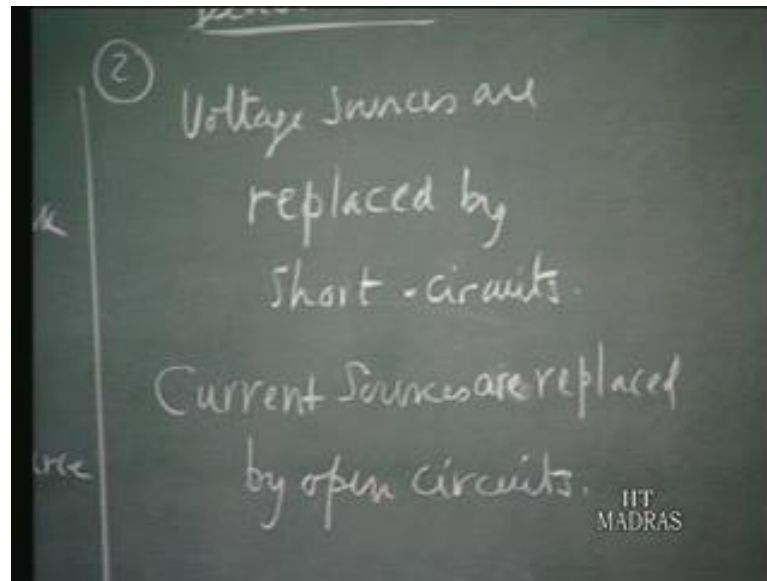 2
Voltage Sources are
replaced by
Short-circuits.
Current Sources are replaced
by open circuits.
IIT
MADRAS